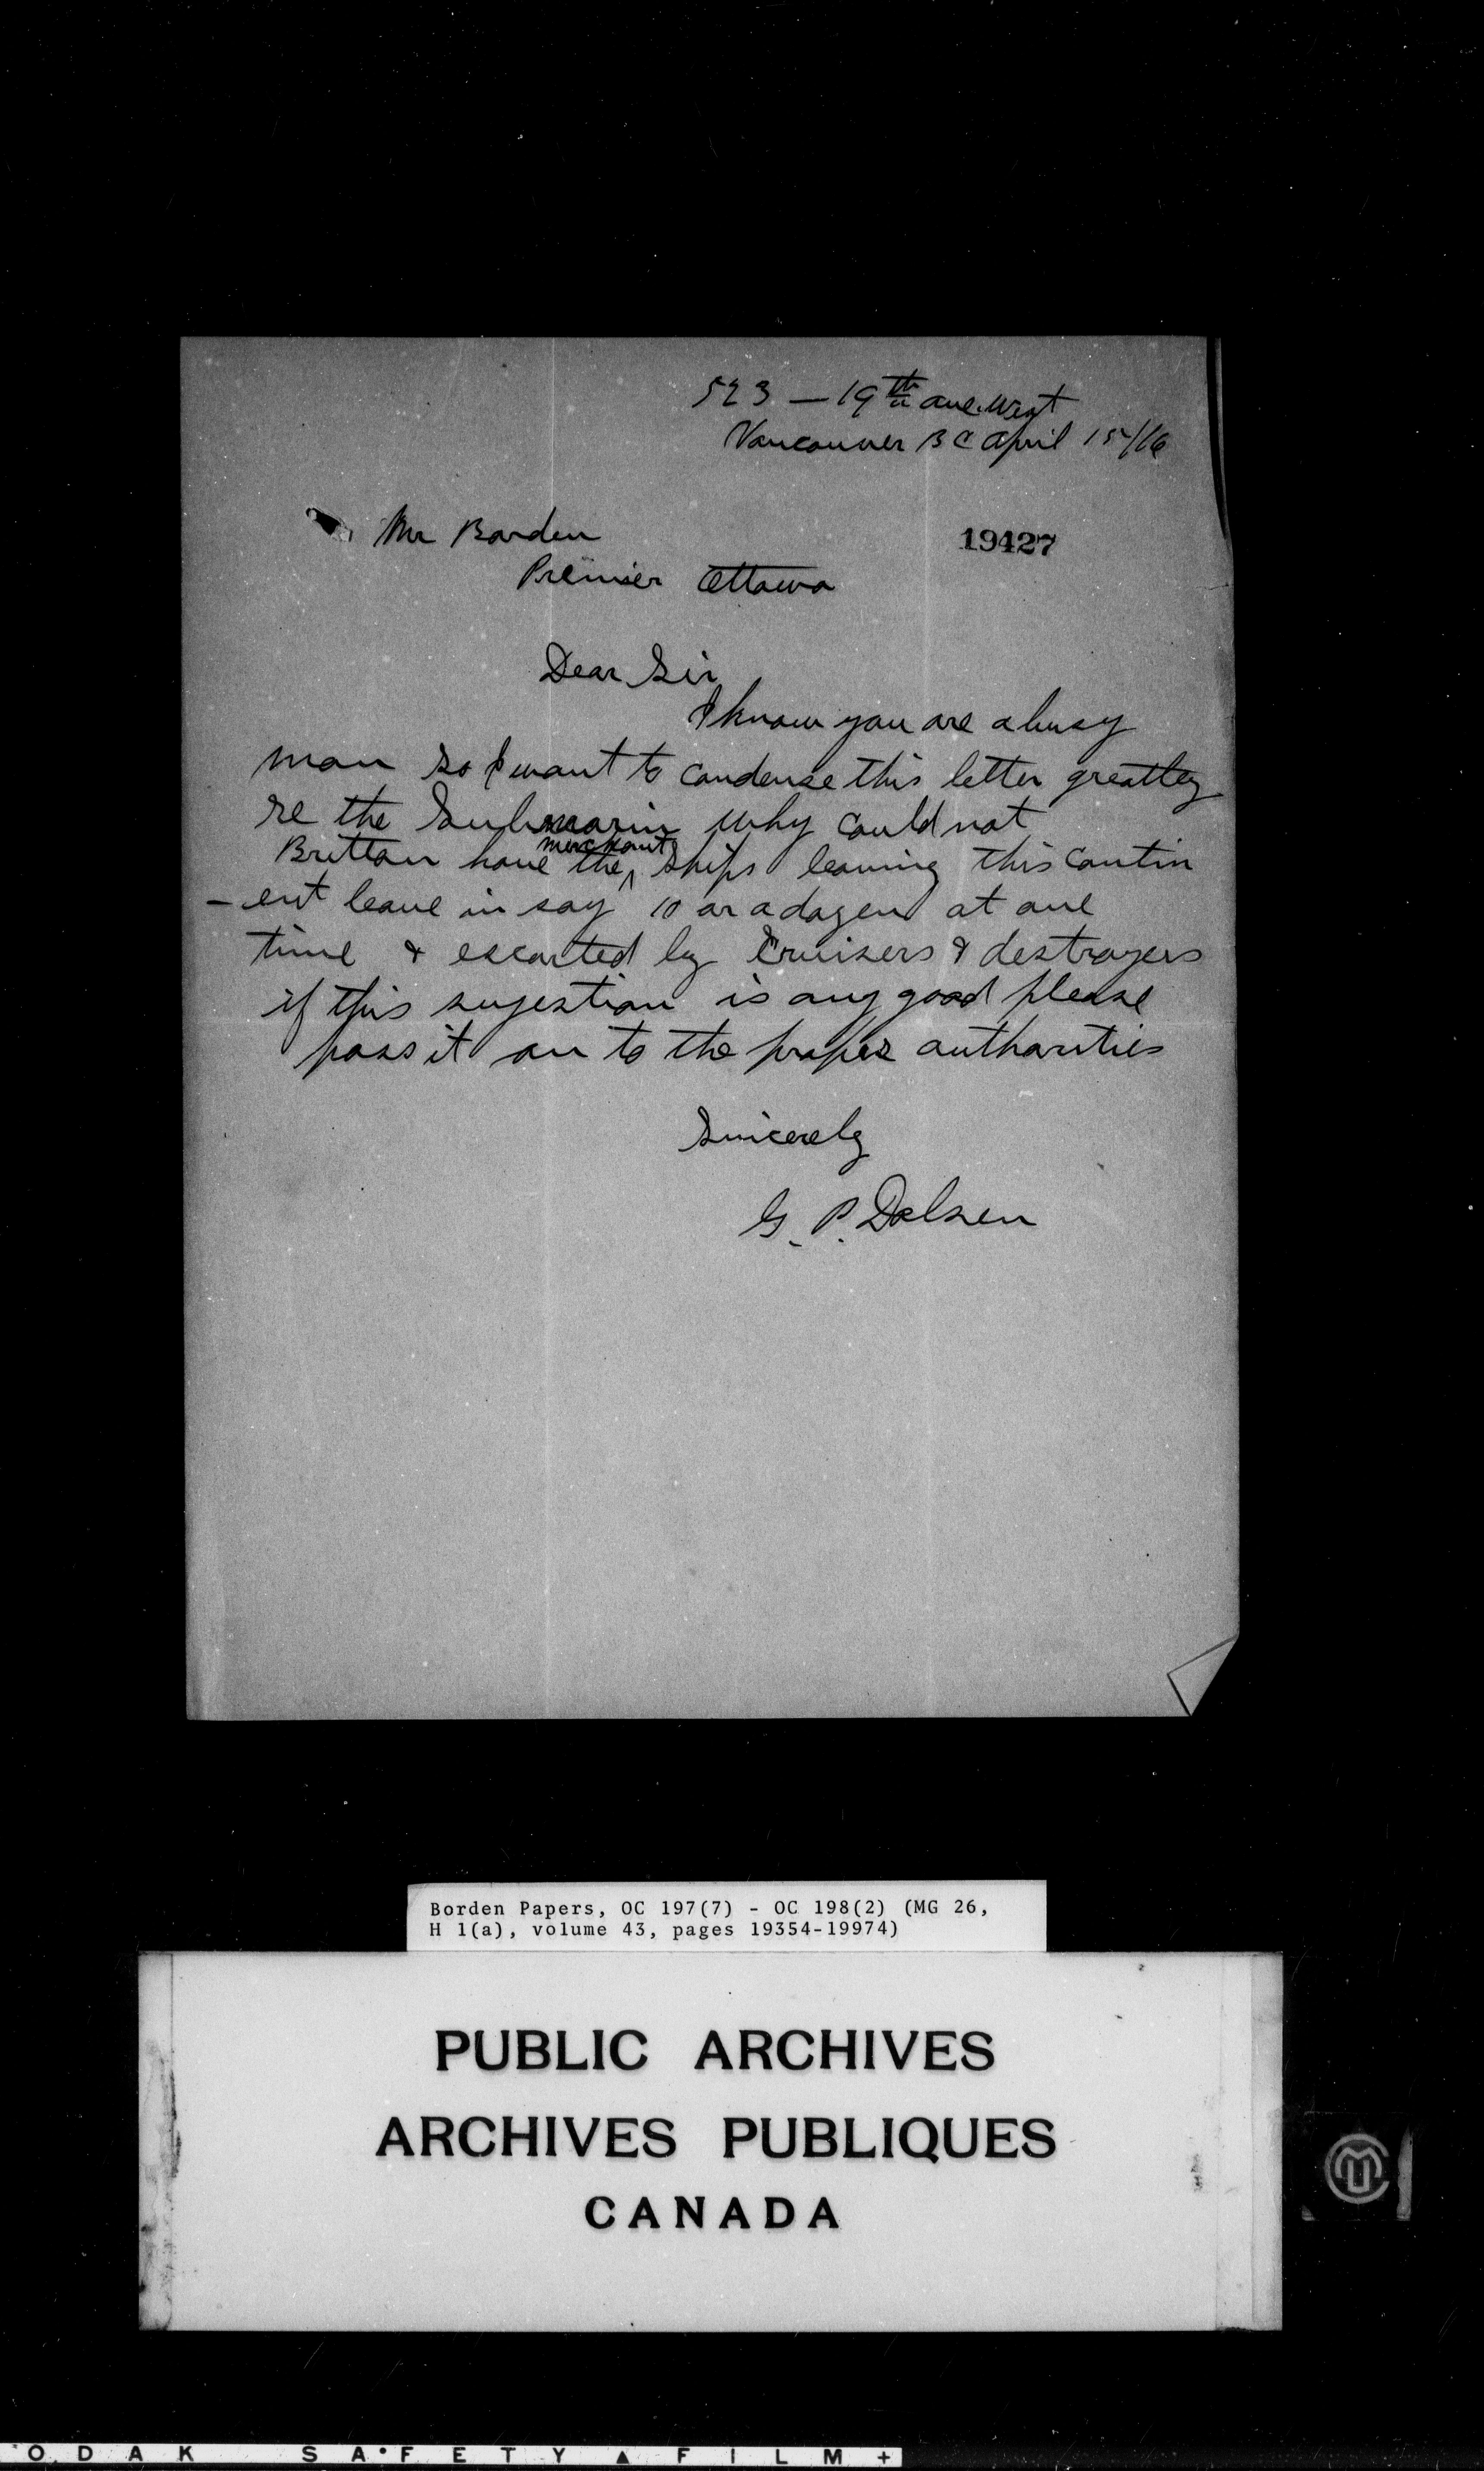 523 — 19th ave. West
Vancouver B C April 15/16
Mr Borden
19427
Premier Ottawa
Dear Sir
I know you are a busy
man so I want to condense this letter greatley
re the Submarin why could not
Brittan have the merchant ships leaving this contin
- ent leave in say 10 or a dozen at one
time & escorted by Cruisers & destroyers
if this sugestion is any good please
pass it on to the proper authorities
Sincerely
G. P. Dolsen
Borden Papers, OC 197(7) - OC 198(2) (MG 26,
H 1(a), volume 43, pages 19354-19974)
PUBLIC ARCHIVES
ARCHIVES PUBLIQUES
CANADA
ODAK SAFETY ▲ FILM +